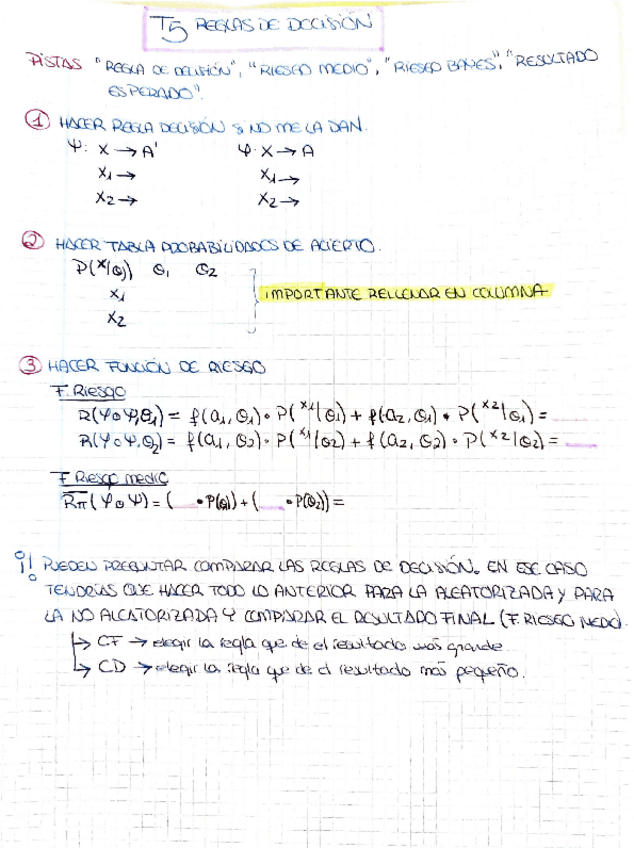 T5 REGLAS DE DECISIÓN
PISTAS "REGLA DE DECISIÓN", "RIESGO MEDIO", "RIESGO BAYES", "RESULTADO
ESPERADO".
① HACER REGLA DECISIÓN SI NO ME LA DAN.
Ψ: X → A' φ: X → A
X1 → X1 →
X2 → X2 →
② HACER TABLA PROBABILIDADES DE ACIERTO.
P(X/θ) θ1 θ2
X1 IMPORTANTE RELLENAR EN COLUMNA
X2
③ HACER FUNCIÓN DE RIESGO
F. Riesgo
R(ΨoΨ,θ1) = f(a1,θ1) • P(X1/θ1) + f(a2,θ1) • P(X2/θ1) =
R(ΨoΨ,θ2) = f(a1,θ2) • P(X1/θ2) + f(a2,θ2) • P(X2/θ2) =
F Riesgo medio
Rπ(ΨoΨ) = ( • P(θ1)) + ( • P(θ2)) =
¡! PUEDEN PREGUNTAR COMPARAR LAS REGLAS DE DECISIÓN. EN ESE CASO
TENDRÍAS QUE HACER TODO LO ANTERIOR PARA LA ALEATORIZADA y PARA
LA NO ALEATORIZADA Y COMPARAR EL RESULTADO FINAL (F. RIESGO MEDIO).
↳ CF → elegir la regla que de el resultado más grande.
↳ CD → elegir la regla que de el resultado más pequeño.